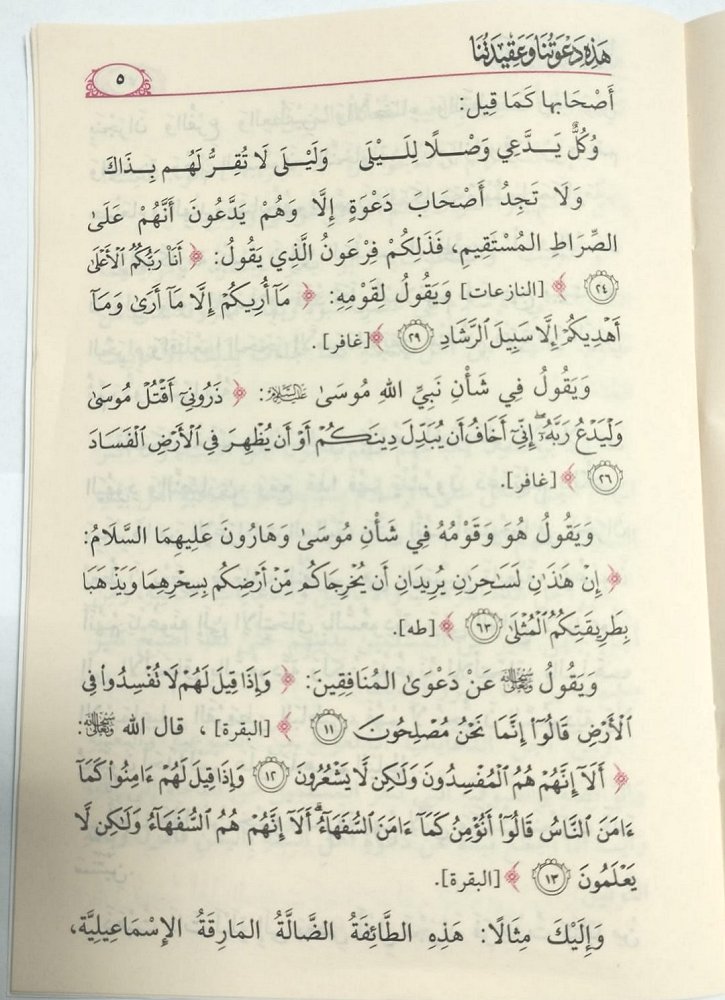 هَذِهِ دَعْوَتُنَا وَعَقِيدَتُنَا
٥
أَصْحَابِهَا كَمَا قِيل:
وُكُلٌّ يَـدَّعِي وَصْـلًا لِلَـيْلَى وَلَيْـلَى لَا تُقِـرُّ لَهُـم بِـذَاكَ
وَلَا تَجِدُ أَصْحَابَ دَعْوَةٍ إِلَّا وَهُمْ يَدَّعُونَ أَنَّهُمْ عَلَىٰ
الصِّرَاطِ المُسْتَقِيمِ، فَذَلِكُمْ فِرْعَونُ الَّذِي يَقُولُ: ﴿ أَنَا۠ رَبُّكُمُ ٱلْأَعْلَىٰ
٢٤ ﴾ [النازعات] وَيَقُولُ لِقَوْمِهِ: ﴿ مَآ أُرِيكُمْ إِلَّا مَآ أَرَىٰ وَمَآ
أَهْدِيكُمْ إِلَّا سَبِيلَ ٱلرَّشَادِ ٢٩ ﴾ [غافر] .
وَيَقُولُ فِي شَأْنِ نَبِيِّ اللهِ مُوسَىٰ عَلَيْهِ السَّلَامُ: ﴿ ذَرُونِيٓ أَقْتُلْ مُوسَىٰ
وَلْيَدْعُ رَبَّهُۥٓ ۖ إِنِّيٓ أَخَافُ أَن يُبَدِّلَ دِينَكُمْ أَوْ أَن يُظْهِرَ فِي ٱلْأَرْضِ ٱلْفَسَادَ
٢٦ ﴾ [غافر].
وَيَقُولُ هُوَ وَقَوْمُهُ فِي شَأْنِ مُوسَىٰ وَهَارُونَ عَلَيهِمَا السَّلَامُ:
﴿ إِنْ هَٰذَٰنِ لَسَٰحِرَٰنِ يُرِيدَانِ أَن يُخْرِجَاكُم مِّنْ أَرْضِكُم بِسِحْرِهِمَا وَيَذْهَبَا
بِطَرِيقَتِكُمُ ٱلْمُثْلَىٰ ٦٣ ﴾ [طه].
وَيَقُولُ سُبْحَانَهُ وَتَعَالَى عَنْ دَعْوَىٰ المُنَافِقِينَ: ﴿ وَإِذَا قِيلَ لَهُمْ لَا تُفْسِدُوا۟ فِي
ٱلْأَرْضِ قَالُوٓا۟ إِنَّمَا نَحْنُ مُصْلِحُونَ ١١ ﴾ [البقرة] ، قال الله سُبْحَانَهُ وَتَعَالَى:
﴿ أَلَآ إِنَّهُمْ هُمُ ٱلْمُفْسِدُونَ وَلَٰكِن لَّا يَشْعُرُونَ ١٢ وَإِذَا قِيلَ لَهُمْ ءَامِنُوا۟ كَمَآ
ءَامَنَ ٱلنَّاسُ قَالُوٓا۟ أَنُؤْمِنُ كَمَآ ءَامَنَ ٱلسُّفَهَآءُ ۗ أَلَآ إِنَّهُمْ هُمُ ٱلسُّفَهَآءُ وَلَٰكِن لَّا
يَعْلَمُونَ ١٣ ﴾ [البقرة].
وَإِلَيْكَ مِثَالًا: هَذِهِ الطَّائِفَةُ الضَّالَّةُ المَارِقَةُ الإِسْمَاعِيلِيَّة،